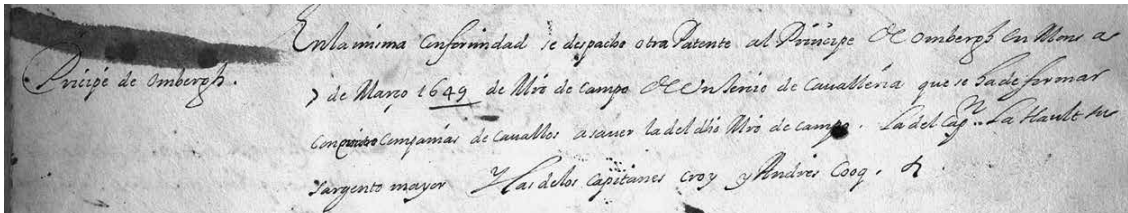 Pricipe de ombergh.
En la misma Conformidad se despacho otra Patente al Principe de ombergh en Mons a
7 de Março 1649 de Mro de campo de un tercio de cavalleria que se ha de formar
con quatro Compañias de cavallos a saver la del dho Mro de campo. La del Capn. La Hault su
sargento mayor y las de los capitanes Croy y Andres Cooq.